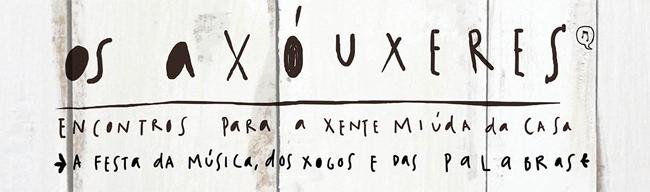 os axóuxeres
ENCONTROS PARA a XENTE MIÚDA da CASA
A FESTA dA MÚSICA, dOS XOGOS E DAS PALABRAS